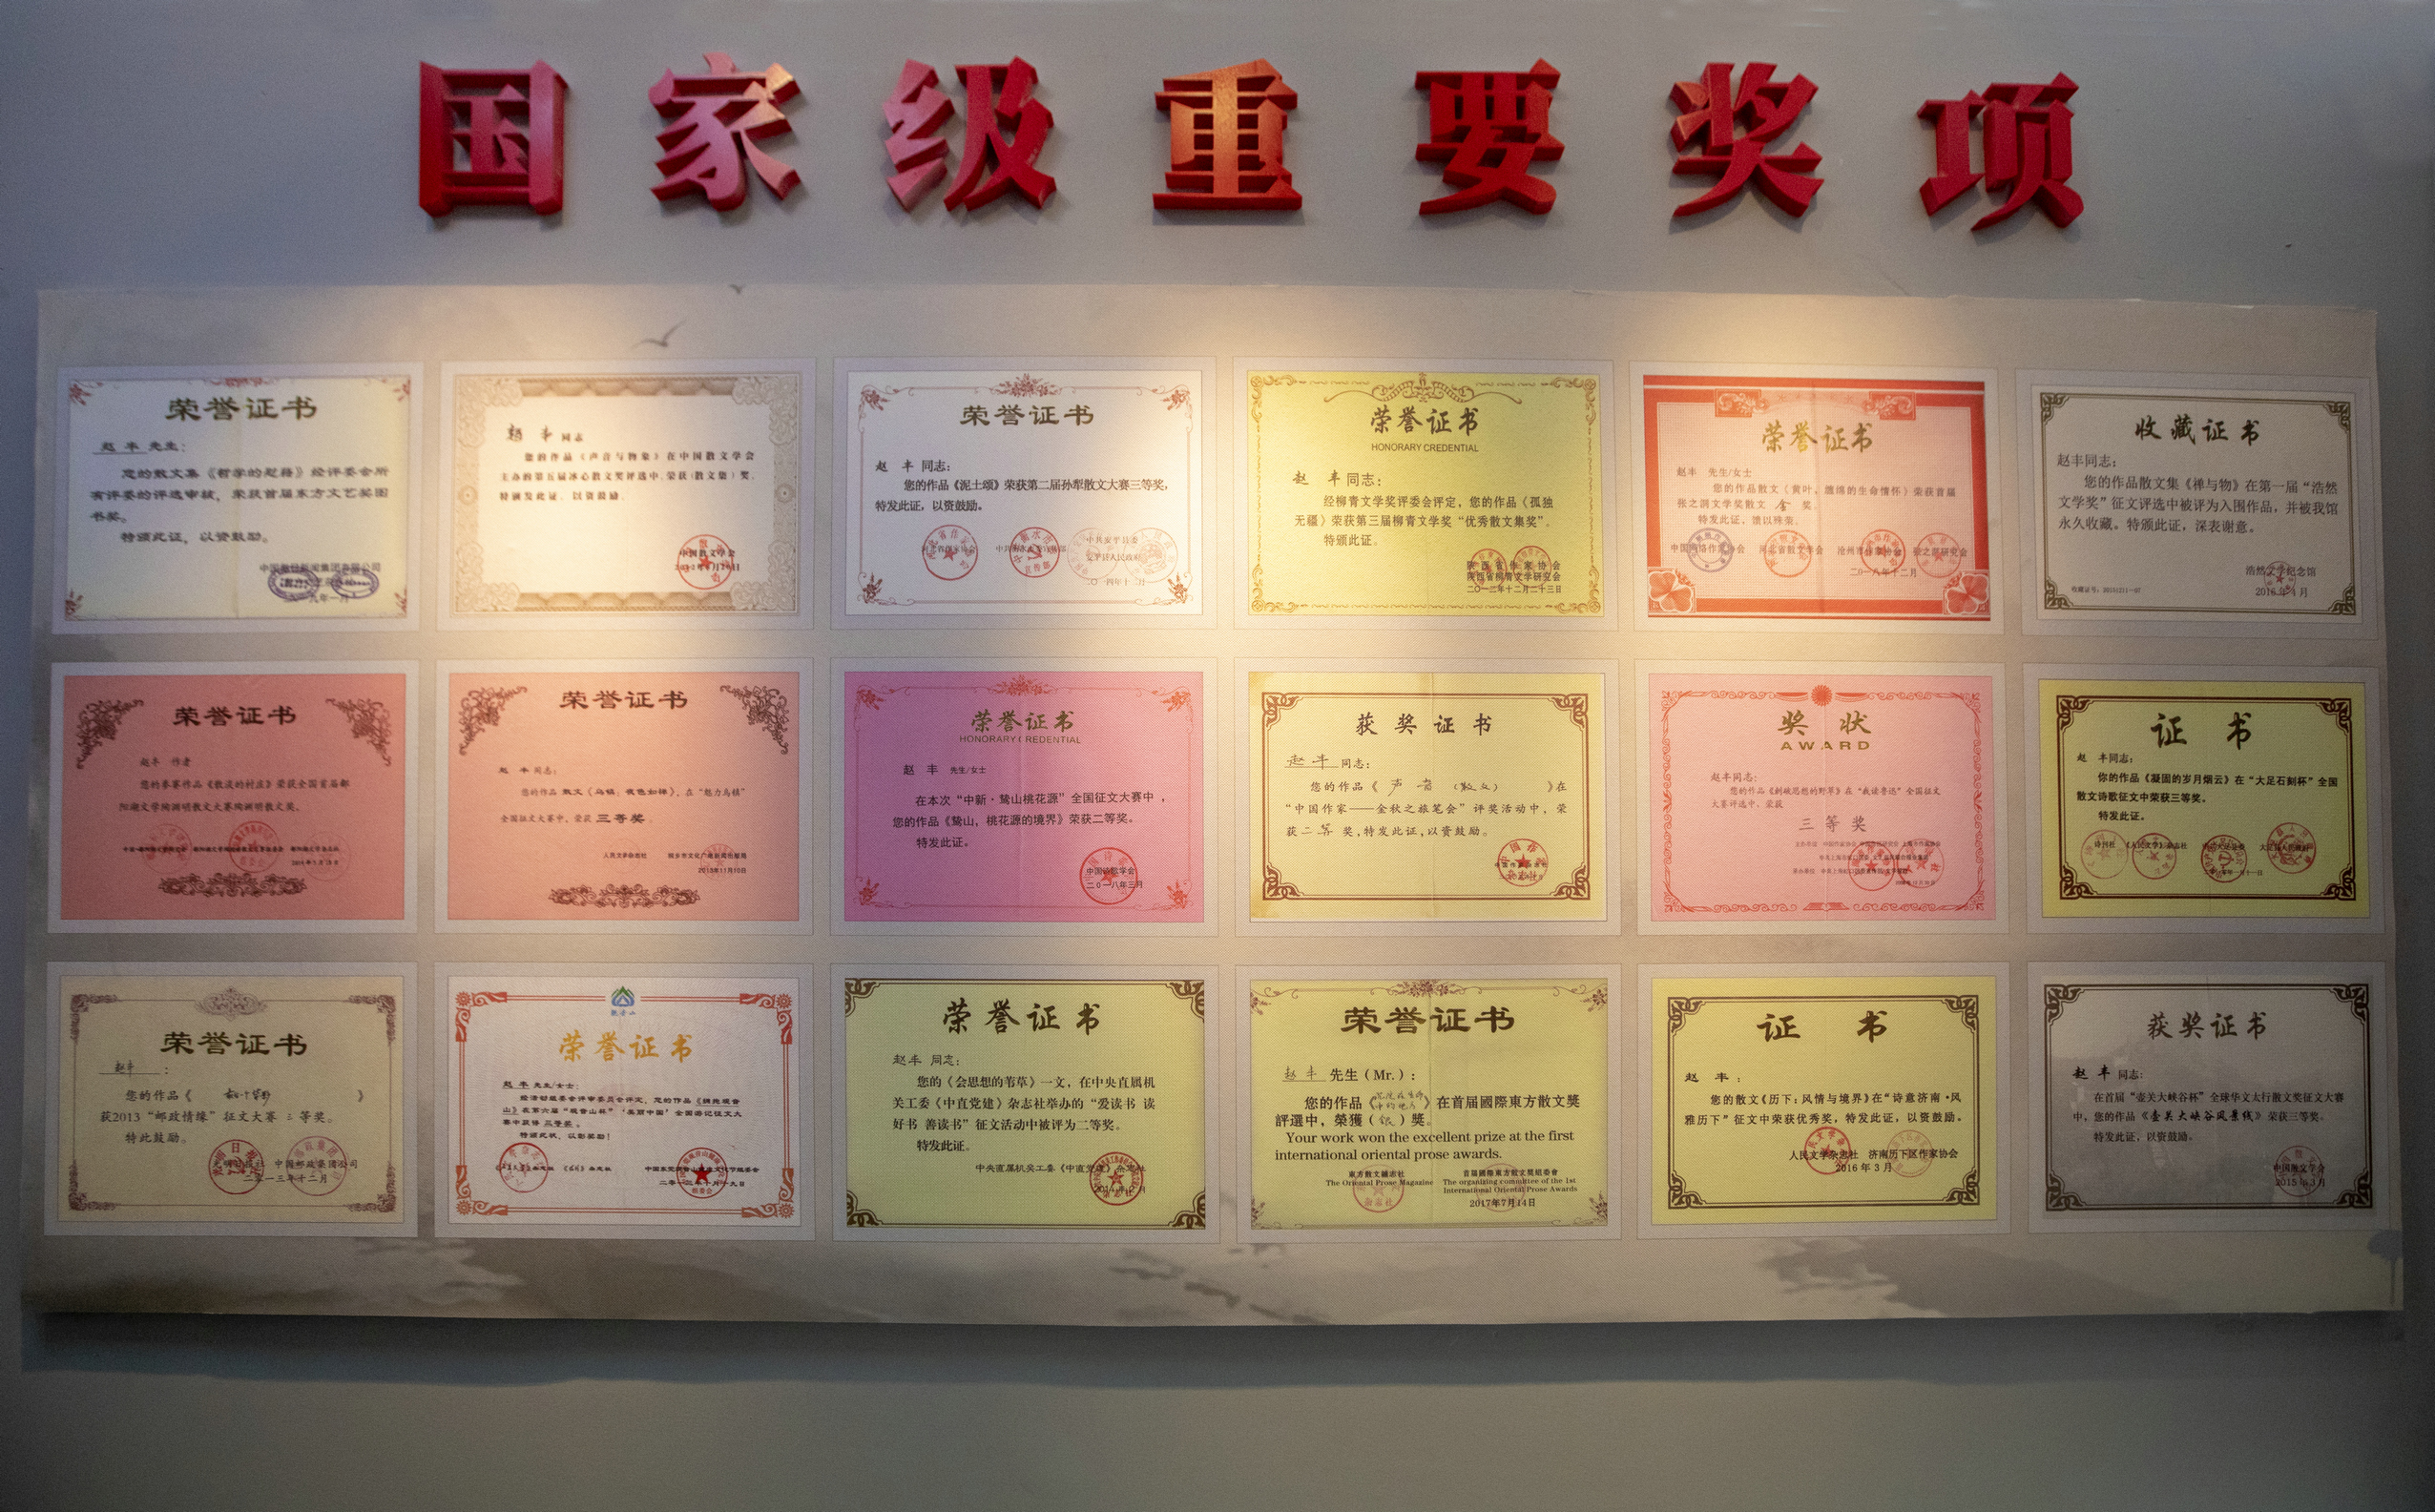 国家级重要奖项
荣誉证书
赵 丰 先生：
您的散文集《哲学的慰藉》经评委会所
有评委的评选审核，荣获首届东方文艺奖图
书奖。
特颁此证，以资鼓励。
赵 丰 同志
您的作品《声音与物象》在中国散文学会
主办的第五届冰心散文奖评选中，荣获(散文集)奖。
特颁发此证，以资鼓励。
中国散文学会
荣誉证书
赵 丰 同志：
您的作品《泥土颂》荣获第二届孙犁散文大赛三等奖，
特发此证，以资鼓励。
中共安平县委
安平县人民政府
二〇一四年十二月
荣誉证书
HONORARY CREDENTIAL
赵 丰 同志：
经柳青文学奖评委会评定，您的作品《孤独
无疆》荣获第三届柳青文学奖“优秀散文集奖”。
特颁此证。
陕西省作家协会
陕西省柳青文学研究会
二〇一二年十二月二十三日
荣誉证书
赵丰 先生/女士
您的作品散文《黄叶，缠绵的生命情怀》荣获首届
张之洞文学奖散文 金 奖。
特发此证，谨以殊荣。
中国网络作家协会 河北省散文学会 沧州市作家协会 张之洞研究会
二〇一八年十二月
收藏证书
赵丰同志：
您的作品散文集《禅与物》在第一届“浩然
文学奖”征文评选中被评为入围作品，并被我馆
永久收藏。特颁此证，深表谢意。
浩然文学纪念馆
荣誉证书
赵丰 作者
您的参赛作品《散淡的村庄》荣获全国首届鄱
阳湖文学陶渊明散文大赛陶渊明散文奖。
荣誉证书
赵 丰 同志：
您的作品 散文《乌镇：夜色如禅》，在“魅力乌镇”
全国征文大赛中，荣获 三等奖 。
人民文学杂志社 桐乡市文化广电新闻出版局
2013年11月10日
荣誉证书
HONORARY CREDENTIAL
赵 丰 先生/女士
在本次“中新·鹫山桃花源”全国征文大赛中，
您的作品《鹫山，桃花源的境界》荣获二等奖。
特发此证。
中国诗歌学会
二〇一八年三月
获奖证书
赵丰 同志：
您的作品《 声音 （散文） 》在
“中国作家——金秋之旅笔会”评奖活动中，荣
获 二等 奖，特发此证，以资鼓励。
奖状
AWARD
赵丰同志：
您的作品《刺破思想的野草》在“我读鲁迅”全国征文
大赛评选中，荣获
三等奖
证书
赵 丰 同志：
你的作品《凝固的岁月烟云》在“大足石刻杯”全国
散文诗歌征文中荣获三等奖。
特发此证。
诗刊社 《人民文学》杂志社
荣誉证书
赵丰 ：
您的作品《 》
获2013“邮政情缘”征文大赛 三 等奖。
特此鼓励。
光明日报社 中国邮政集团公司
二〇一三年十二月
荣誉证书
赵 丰 先生/女士：
经活动组委会评审委员会评定，您的作品《拥抱观音
山》在第六届“观音山杯”‘美丽中国’全国游记征文大
赛中获得 三等奖 。
特颁此状，以彰奖励！
荣誉证书
赵丰 同志：
您的《会思想的苇草》一文，在中央直属机
关工委《中直党建》杂志社举办的“爱读书 读
好书 善读书”征文活动中被评为二等奖。
特发此证。
中央直属机关工委《中直党建》杂志社
荣誉证书
赵丰 先生（Mr.）：
您的作品《 》在首届國際東方散文獎
評選中，榮獲（ 银 ）獎。
Your work won the excellent prize at the first
international oriental prose awards.
東方散文雜志社 首届國際東方散文獎組委會
The Oriental Prose Magazine The organizing committee of the 1st
International Oriental Prose Awards
2017年7月14日
证书
赵 丰：
您的散文《历下：风情与境界》在“诗意济南·风
雅历下”征文中荣获优秀奖，特发此证，以资鼓励。
人民文学杂志社 济南历下区作家协会
2016年3月
获奖证书
赵丰 同志：
在首届“壶关大峡谷杯”全球华文太行散文奖征文大赛
中，您的作品《壶关大峡谷风景线》荣获三等奖。
特发此证，以资鼓励。
中国散文学会
2015年3月